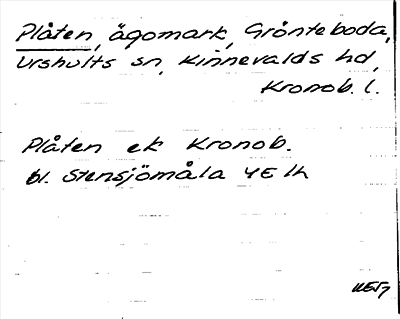 Plåten, ägomark, Grönteboda,
Urshults sn, Kinnevalds hd,
Kronob. l.
Plåten ek Kronob.
bl. Stensjömåla 4E 1h